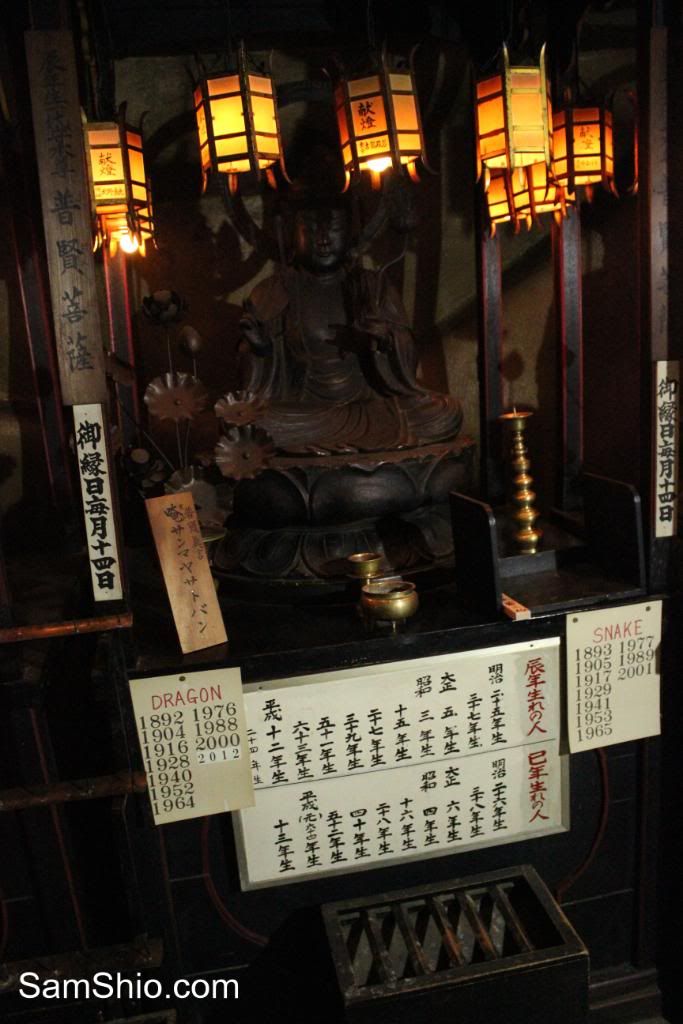 献燈
献燈
献燈
普賢菩薩
御縁日毎月十四日
御縁日毎月十四日
唵サンマヤサトバン
DRAGON
1892 1976
1904 1988
1916 2000
1928 2012
1940
1952
1964
SNAKE
1893 1977
1905 1989
1917 2001
1929
1941
1953
1965
辰年生れの人
明治 二十五年生
三十七年生
大正 五年生
昭和 三年生
十五年生
二十七年生
三十九年生
五十一年生
六十三年生
平成 十二年生
二十四年生
巳年生れの人
明治 二十六年生
三十八年生
大正 六年生
昭和 四年生
十六年生
二十八年生
四十年生
五十二年生
平成(元)六十四年生
十三年生
SamShio.com